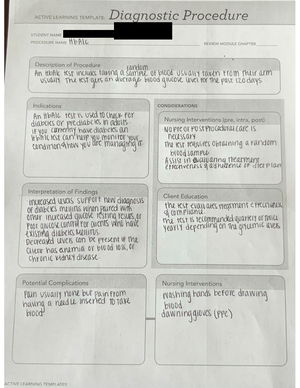 ACTIVE LEARNING TEMPLATE: Diagnostic Procedure
STUDENT NAME
PROCEDURE NAME HbA1c
REVIEW MODULE CHAPTER
Description of Procedure
random
An HbA1c test includes taking a sample of blood usually taken from their arm
usually. The test gives an average blood glucose level for the past 120 days
Indications
An HbA1c test is used to check for
diabetes or prediabetes in adults.
if you currently have diabetes an
HbA1c test can help you monitor your
condition & how you are managing it
CONSIDERATIONS
Nursing Interventions (pre, intra, post)
No Pre or Post Procedural care is
necessary
The test requires obtaining a random
blood sample
Assist in evaluating treatment
effectiveness & adherence of client plan
Interpretation of Findings
Increased levels support new diagnosis
of diabetes mellitus when paired with
other increased glucose testing results, or
Poor glucose control for clients who have
existing diabetes mellitus.
Decreased levels can be present if the
client has anemia or blood loss, or
chronic kidney disease
Client Education
The test evaluates treatment effectiveness
& compliance.
The test is recommended quarterly or twice
yearly depending on the glycemic levels
Potential Complications
Pain usually none but pain from
having a needle inserted to take
blood
Nursing Interventions
washing hands before drawing
blood
dawning gloves (pre)
ACTIVE LEARNING TEMPLATES